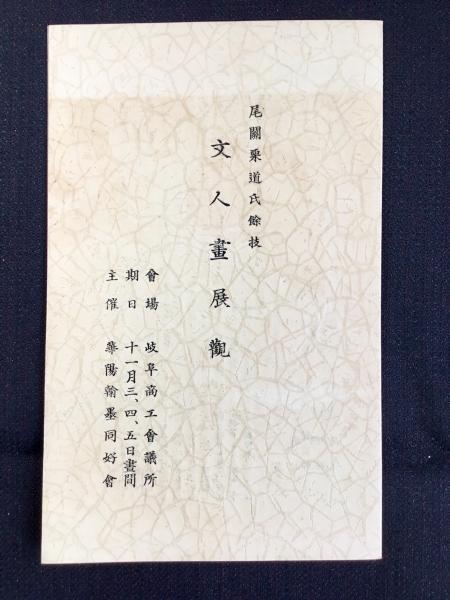 尾關栗道氏餘技
文人畫展觀
會場 岐阜商工會議所
期日 十一月三、四、五日晝間
主催 華陽翰墨同好會